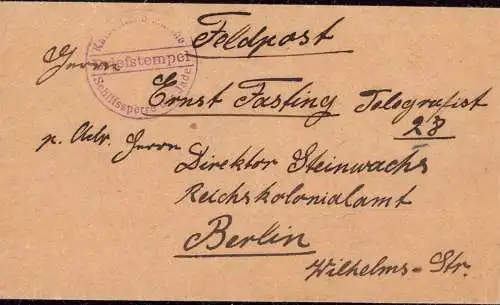 Feldpost
Briefstempel
Schiffssperre Jade
Herrn
Ernst Fasting Telegrafist
28
p. Adr. Herrn
Direktor Steinwachs
Reichskolonialamt
Berlin
Wilhelms-Str.